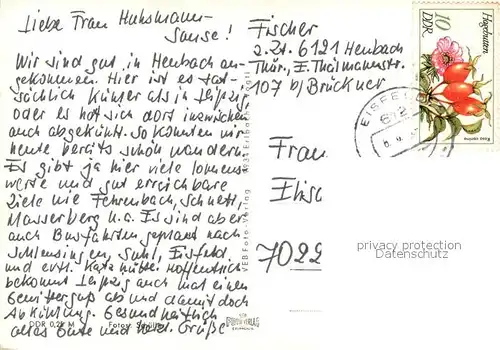 Liebe Frau Huhsmann-
Sause!
Wir sind gut in Heubach an-
gekommen. Hier ist es tat-
sächlich kühler als in Leipzig,
oder es hat sich dort inzwischen
auch abgekühlt. So konnten wir
heute bereits schön wandern.
Es gibt ja hier viele lohnens-
werte und gut erreichbare
Ziele wie Fehrenbach, Schnett,
Masserberg u.a. Es sind aber
auch Busfahrten geplant nach
Schleusingen, Suhl, Eisfeld
und evtl. Katzhütte. Hoffentlich
bekommt Leipzig auch mal einen
Gewitterguß ab und damit doch
Abkühlung. Gesundheitlich
alles Gute und herzl. Grüße
Fischer
z.Zt. 6121 Heubach
Thür., E. Thälmannstr.
107 b/ Brückner
Frau
Elisa
7022
Hagebutten
10
DDR
Rosa canina
EISFE
612
VEB Foto-Verlag
DDR 0,25 M
Fotos:
privacy protection
Datenschutz